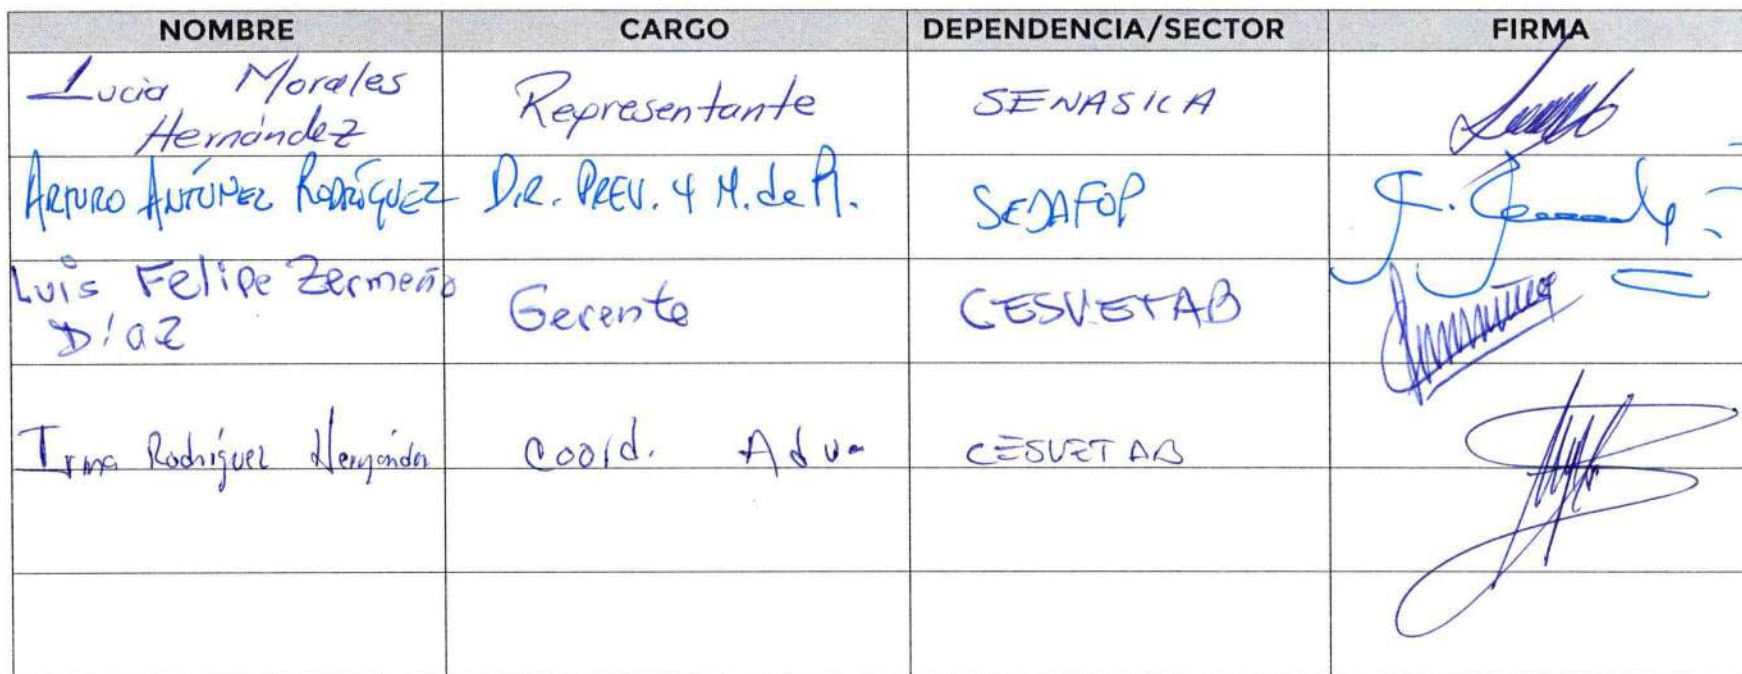 NOMBRE CARGO DEPENDENCIA/SECTOR FIRMA
Lucia Morales Hernández Representante SENASICA
ARTURO ANTÚNEZ RODRÍGUEZ DIR. PREV. Y M. de R. SEDAFOP
Luis Felipe Zermeño Díaz Gerente CESVETAB
Irma Rodríguez Hernández Coord. Adva CESVETAB